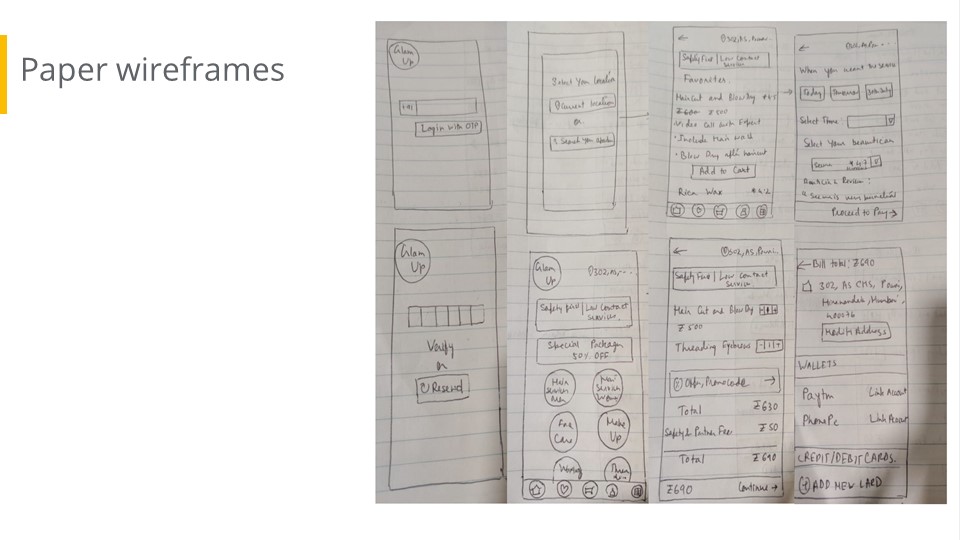 Paper wireframes
Glam
Up
+91
Login with OTP
Select Your Location
Current location
OR
Search Your
302, AS, Powai..
Safety First | Low Contact
Service
Favorites
Haircut and Blow Dry
₹600 ₹500
Video Call with Expert
• Include Hair wash
• Blow Dry after haircut
Add to Cart
Rica Wax ★4.2
When you want the service
Today
Tomorrow
Select Time
Select Your beautician
Seema ★4.7
Review:
Proceed to Pay →
Glam
Up
Verify
OR
Resend
Glam
Up
302, AS, ...
Safety First | Low Contact
Service
Special Packages
50% OFF
Hair
Service
Men
Hair
Service
Women
Face
Care
Make
Up
Waxing
302, AS, Powai.
Safety First | Low Contact
Service
Hair Cut and Blow Dry - 1 +
₹500
Threading Eyebrows - 1 +
Offer, Promocodes →
Total ₹630
Safety & Partner Fee ₹50
Total ₹690
₹690 Continue →
← Bill total: ₹690
302, AS CHS, Powai,
Hiranandani, Mumbai,
400076
Modify Address
WALLETS
Paytm Link Account
PhonePe Link Account
CREDIT/DEBIT CARDS.
+ ADD NEW CARD